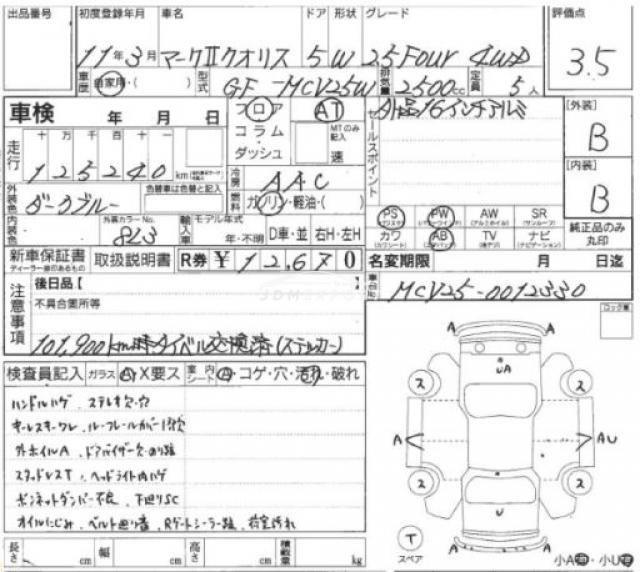 出品番号 初度登録年月 車名 ドア 形状 グレード 評価点
11年3月 マークⅡクオリス 5 W 2.5 Four 4WD 3.5
車歴 自家用・( ) 型式 GF-MCV25W 排気量 2500cc 定員 5人
車検 年 月 日
フロア コラム・ダッシュ AT MTのみ記入 速
セールスポイント 外品16インチアルミ
[外装] B
走行 十 万 千 百 十 一
125240 km
冷房 AAC
[内装] B
外装色 ダークブルー 色替車は色替と記入
燃料 ガソリン・軽油・( )
PS PW AW SR
(パワステ) (パワーウインド) (アルミホイル) (サンルーフ)
内装色 外装カラーNo. 8L3 輸入車 モデル年式 年・不明 D車・並 右H・左H
カワ AB TV ナビ 純正品のみ丸印
(ワソシート) (エアバッグ) (地デジ) (ナビゲーション)
新車保証書 取扱説明書 R券 ¥12,670
ディーラー印のあるもの
名変期限 月 日迄
注意事項 後日品【 】
不具合箇所等
車台No. MCV25-0012330
101,900km時タイベル交換済(ステッカー)
ロック車
検査員記入 ガラス A・X要ス 室内シート A・コゲ・穴・汚れ・破れ
ハンドルハゲ ステレオ欠・穴
キーレスキーワレ、ルーフレールカバー1ケ欠
外ホイルA、ドアバイザー欠・のり跡
スタッドレスT ヘッドライト内ハゲ
ボンネットダンパー不良 下廻りSC
オイルにじみ、ベルト廻り音、Rゲートシーラー跡、荷室汚れ
A A
UA
ス ス
A AU
ス ス
U
T スペア
A A
小A・小U
長さ cm 幅 cm 高さ cm 積載量 kg